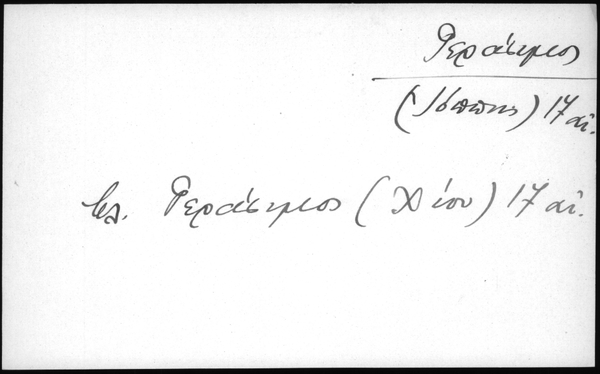 Γεράσιμος
(Ιόππης) 17 αἰ.
βλ. Γεράσιμος (Χίου) 17 αἰ.